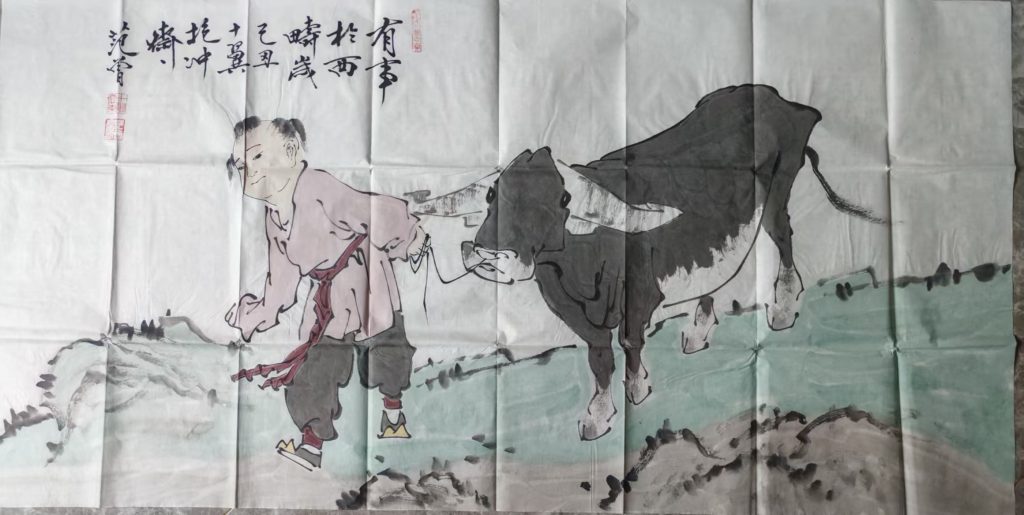 有事
於西
疇歲
己丑
十翼
抱冲
齋
范曾